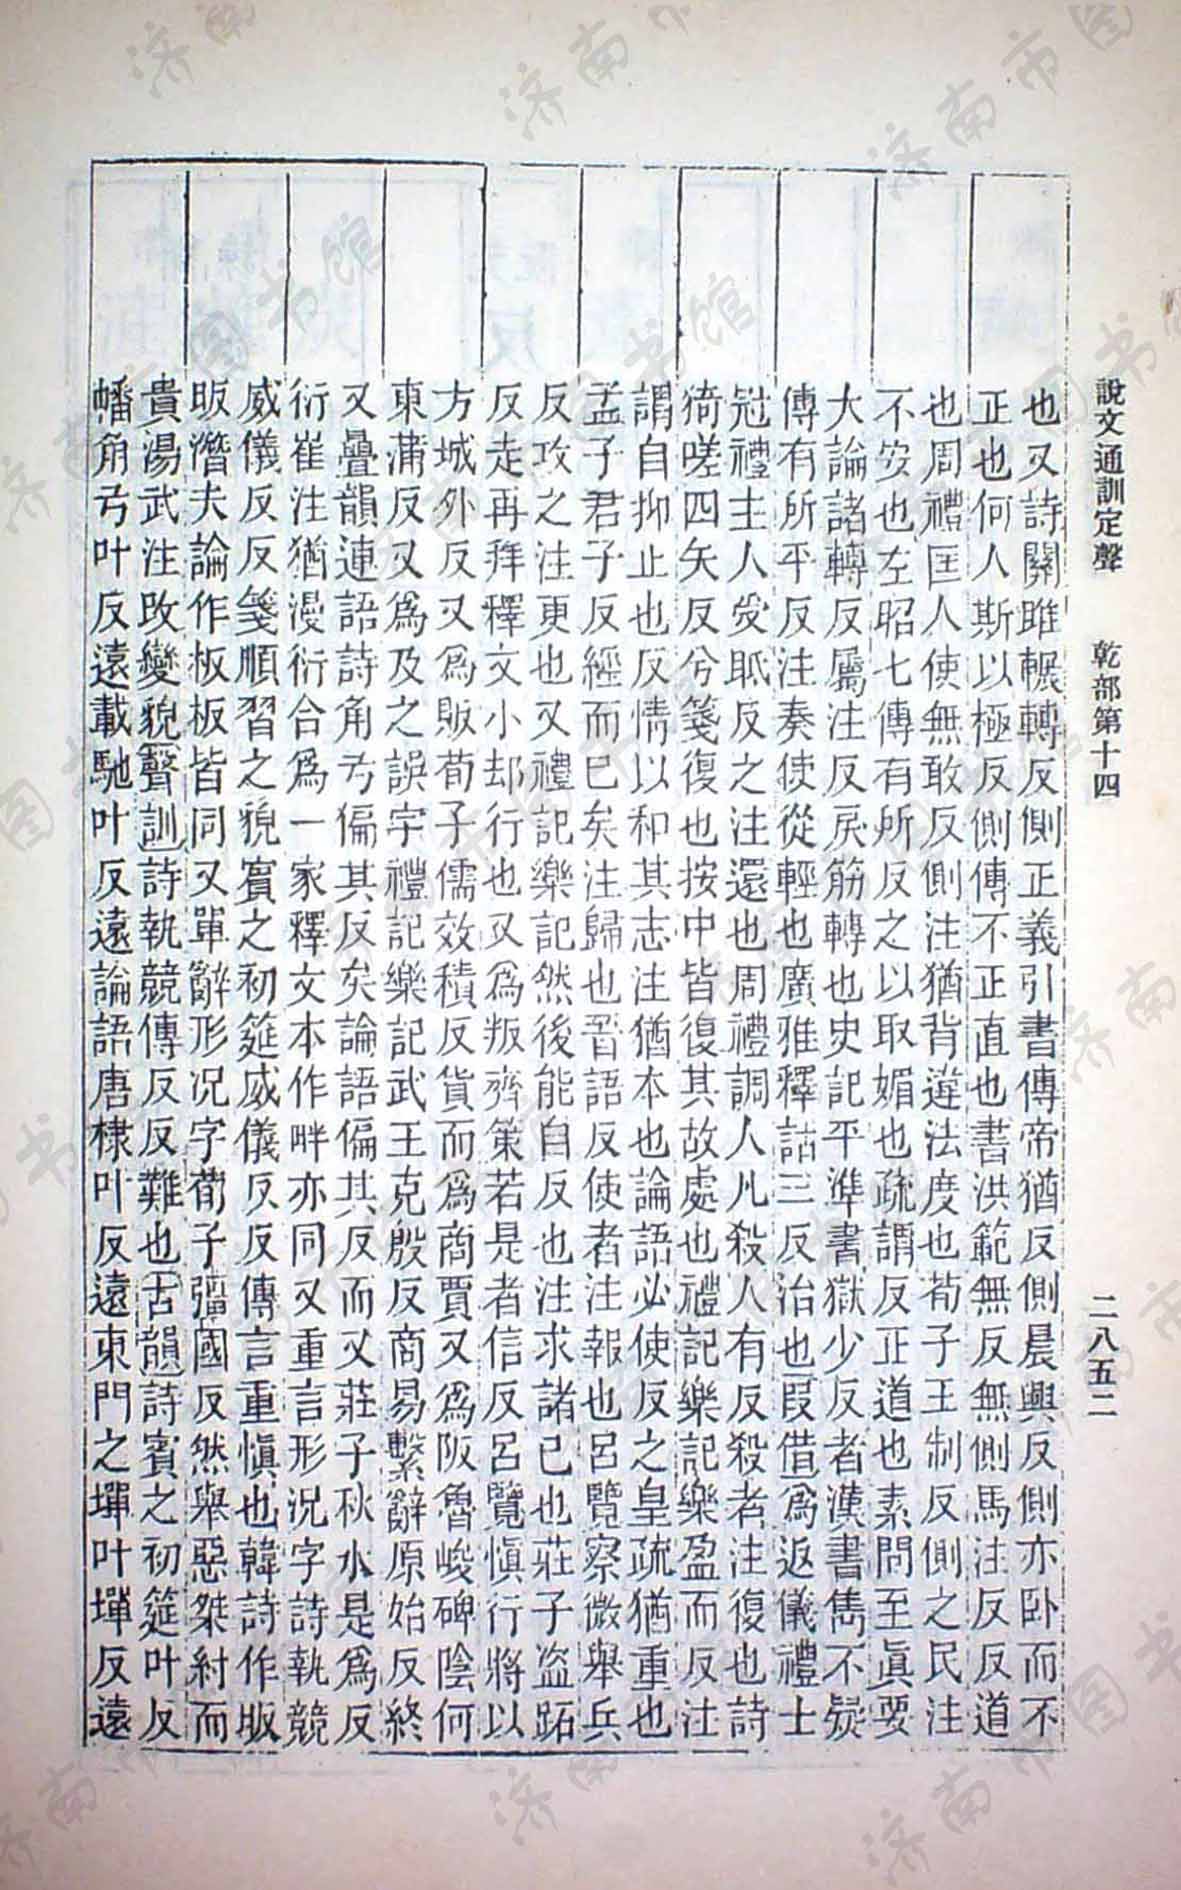 說文通訓定聲　乾部第十四　二八五二
也又詩關雎輾轉反側正義引書傳帝猶反側晨興反側亦卧而不
正也何人斯以極反側傳不正直也書洪範無反無側馬注反反道
也周禮匡人使無敢反側注猶背違法度也荀子王制反側之民注
不安也左昭七傳有所反之以取媚也疏謂反正道也素問至眞要
大論諸轉反屬注反戾筋轉也史記平準書獄少反者漢書雋不疑
傳有所平反注奏使從輕也廣雅釋詁三反治也叚借爲返儀禮士
冠禮主人受眂反之注還也周禮調人凡殺人有反殺者注復也詩
猗嗟四矢反兮箋復也按中皆復其故處也禮記樂記樂盈而反注
謂自抑止也反情以和其志注猶本也論語必使反之皇疏猶重也
孟子君子反經而已矣注歸也晉語反使者注報也呂覽察微舉兵
反攻之注更也又禮記樂記然後能自反也注求諸己也莊子盜跖
反走再拜釋文小却行也又爲叛齊策若是者信反呂覽愼行將以
方城外反又爲販荀子儒效積反貨而爲商賈又爲阪魯峻碑陰何
東蒲反又爲及之誤字禮記樂記武王克殷反商易繫辭原始反終
又疊韻連語詩角弓偏其反矣論語偏其反而又莊子秋水是爲反
衍崔注猶漫衍合爲一家釋文本作畔亦同又重言形況字詩執競
威儀反反箋順習之貌賓之初筵威儀反反傳言重愼也韓詩作昄
昄潛夫論作板板皆同又單辭形況字荀子彊國反然舉惡桀紂而
貴湯武注改變貌聲訓詩執競傳反反難也古韻詩賓之初筵叶反
幡角弓叶反遠載馳叶反遠論語唐棣叶反遠東門之墠叶墠反遠